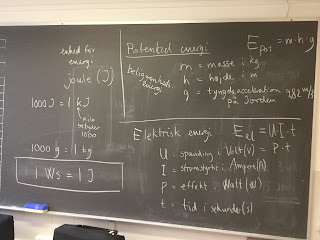 enhed for
energi
joule (J)
1000 J = 1 kJ
kilo
betyder
1000
1000 g = 1 kg
1 Ws = 1 J
Potentiel energi
E pot = m·h·g
beliggenheds-
energi
m = masse i kg
h = højde i m
g = tyngdeacceleration 9,82 m/s²
på Jorden
Elektrisk energi
E el = U·I·t
= P·t
U = spænding i Volt(V)
I = strømstyrke i Ampere(A)
P = effekt i Watt (W)
t = tid i sekunder(s)